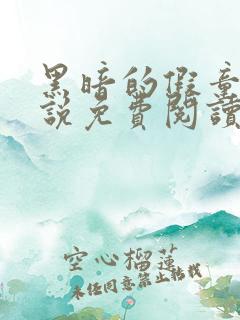 黑暗的假童
說免費閱讀
空心榴莲
未经同意禁止转载